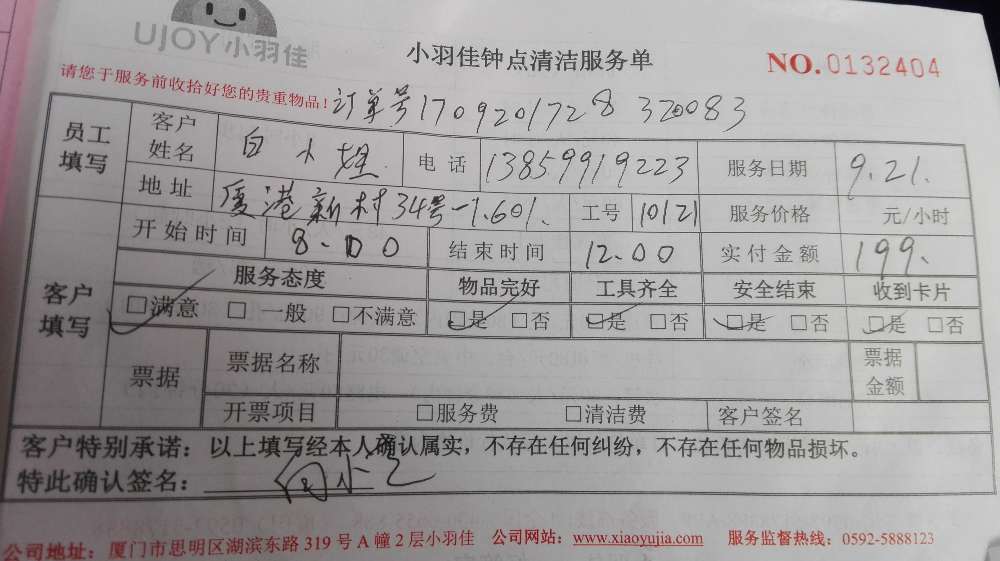 UJOY小羽佳
小羽佳钟点清洁服务单
NO.0132404
请您于服务前收拾好您的贵重物品!
订单号1709201728320083
员工填写 客户姓名 白小姐 电话 13859919223 服务日期 9.21.
地址 厦港新村34号-1.601. 工号 10121 服务价格 元/小时
客户填写 开始时间 8.00 结束时间 12.00 实付金额 199.
服务态度 物品完好 工具齐全 安全结束 收到卡片
□满意 □一般 □不满意 □是 □否 □是 □否 □是 □否 □是 □否
票据 票据名称 票据金额
开票项目 □服务费 □清洁费 客户签名
客户特别承诺:以上填写经本人确认属实,不存在任何纠纷,不存在任何物品损坏。
特此确认签名:
公司地址:厦门市思明区湖滨东路319号A幢2层小羽佳 公司网站:www.xiaoyujia.com 服务监督热线:0592-5888123